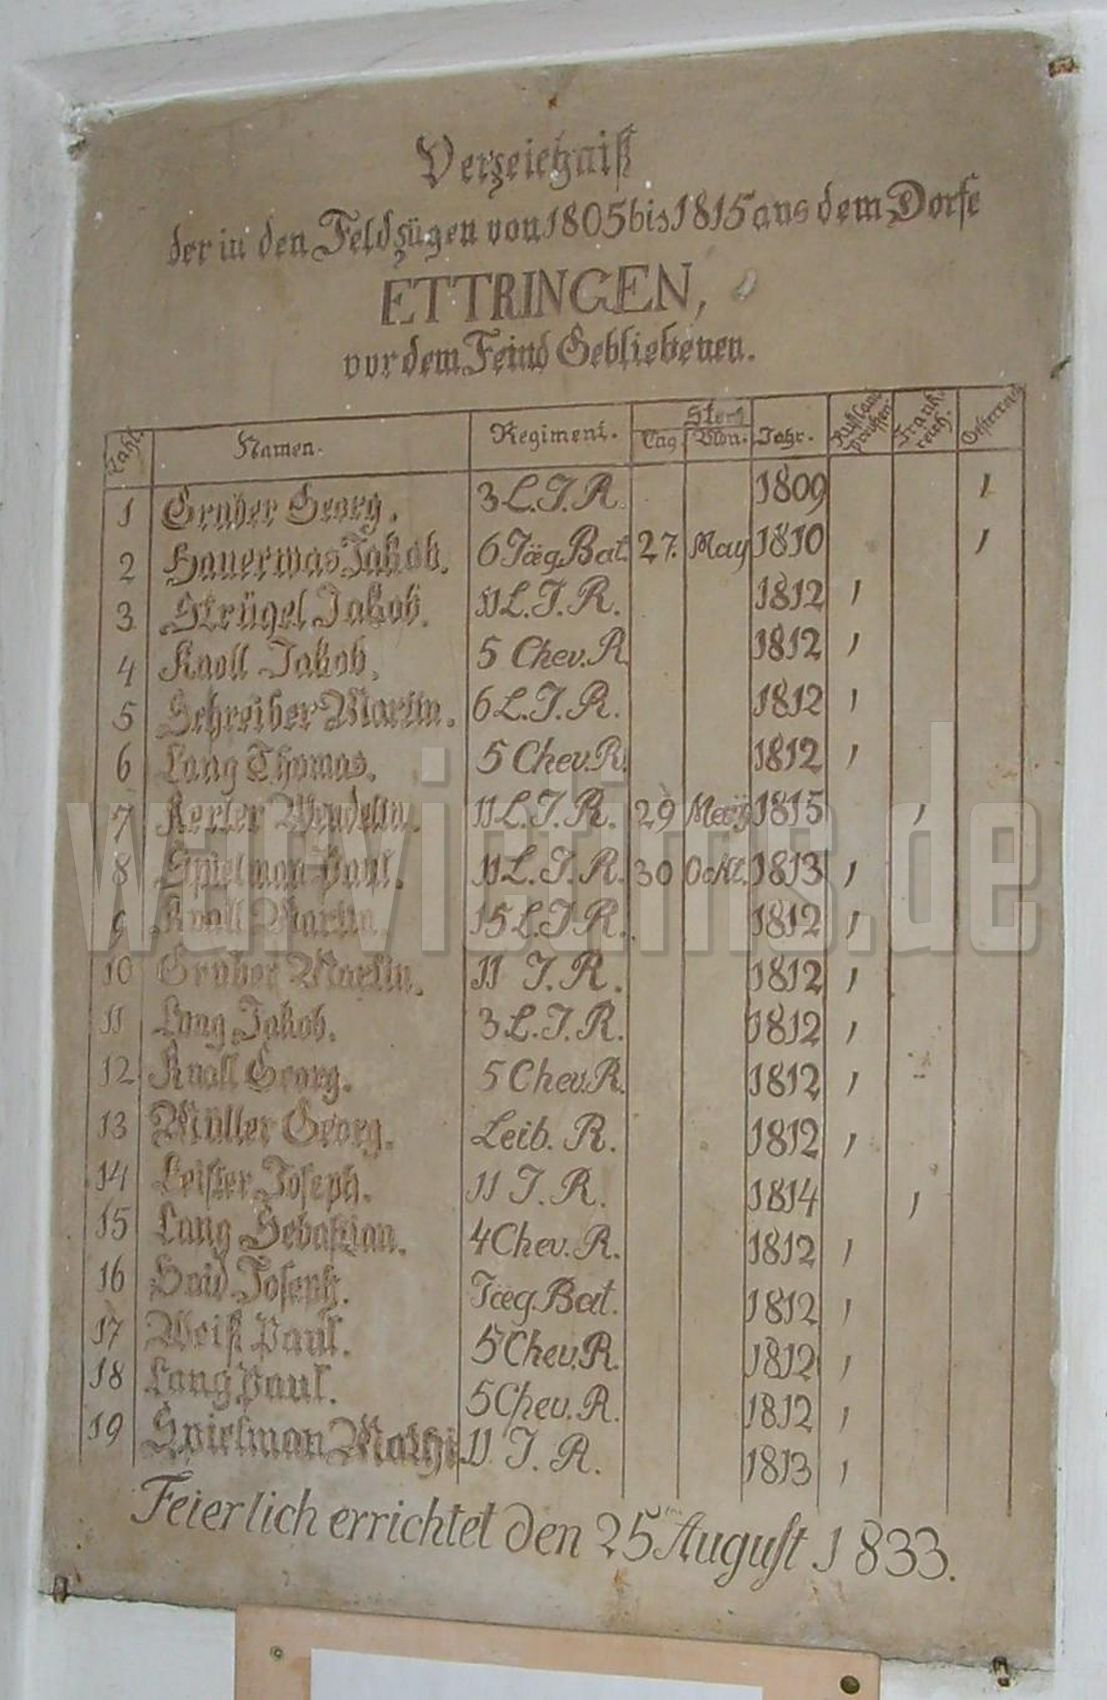 Verzeichniß
der in den Feldzügen von 1805 bis 1815 aus dem Dorfe
ETTRINGEN,
vor dem Feind Gebliebenen.
Zahl. Namen. Regiment. Sterb Tag. Mon. Jahr. Rußland Preußen Frank-reich. Oesterreich
1 Gruber Georg. 3 L.J.R. 1809 ,
2 Hauerwas Jakob. 6 Jæg.Bat. 27. May 1810 ,
3 Strügel Jakob. 11 L.J.R. 1812 ,
4 Knoll Jakob. 5 Chev.R. 1812 ,
5 Schreiber Martin. 6 L.J.R. 1812 ,
6 Lang Thomas. 5 Chev.R. 1812 ,
7 Kerler Wendelin. 11 L.J.R. 29 1815 ,
8 Spielman Paul. 11 L.J.R. 30 Ockt. 1813 ,
9 Knoll Martin. 15 L.J.R. 1812 ,
10 Gruber Martin. 11 J.R. 1812 ,
11 Lang Jakob. 3 L.J.R. 1812 ,
12 Knoll Georg. 5 Chev.R. 1812 ,
13 Müller Georg. Leib. R. 1812 ,
14 Leister Joseph. 11 J.R. 1814 ,
15 Lang Sebastian. 4 Chev.R. 1812 ,
16 Haid Joseph. Jæg.Bat. 1812 ,
17 Weiß Paul. 5 Chev.R. 1812 ,
18 Lang Paul. 5 Chev.R. 1812 ,
19 Spielman Mathi. 11 J.R. 1813 ,
Feierlich errichtet den 25ten August 1833.
warvictims.de